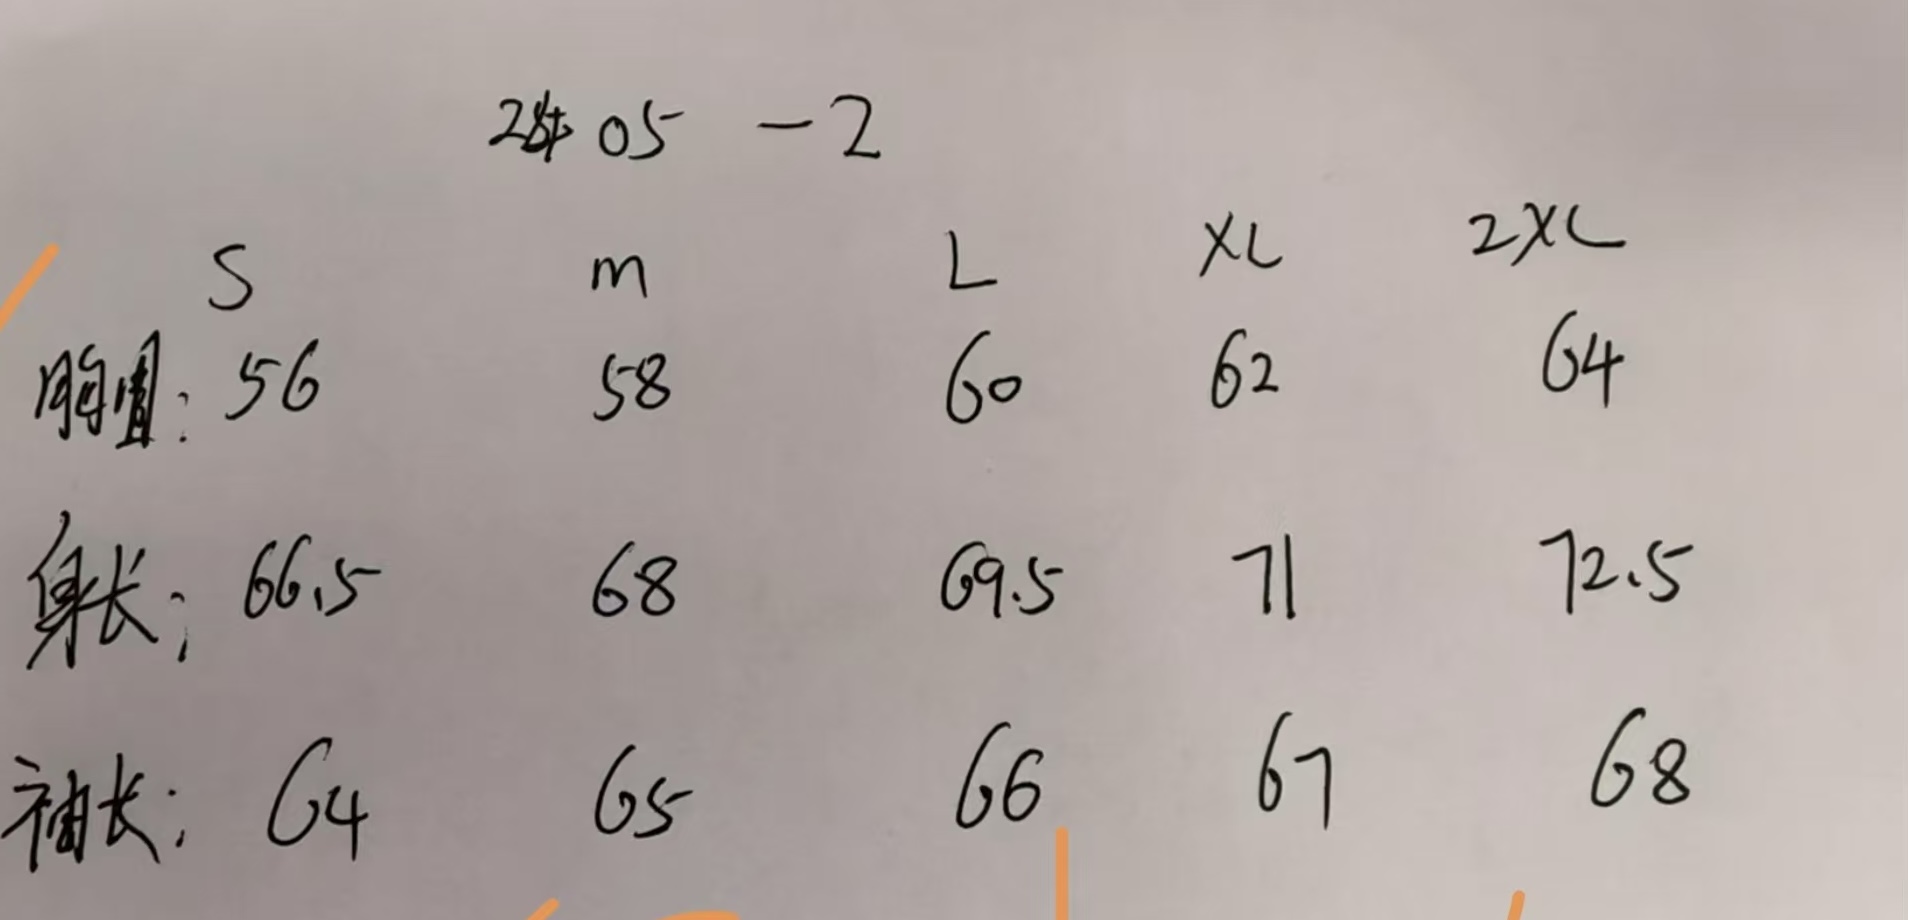 05 -2
S m L XL 2XL
胸围: 56 58 60 62 64
身长: 66.5 68 69.5 71 72.5
袖长: 64 65 66 67 68